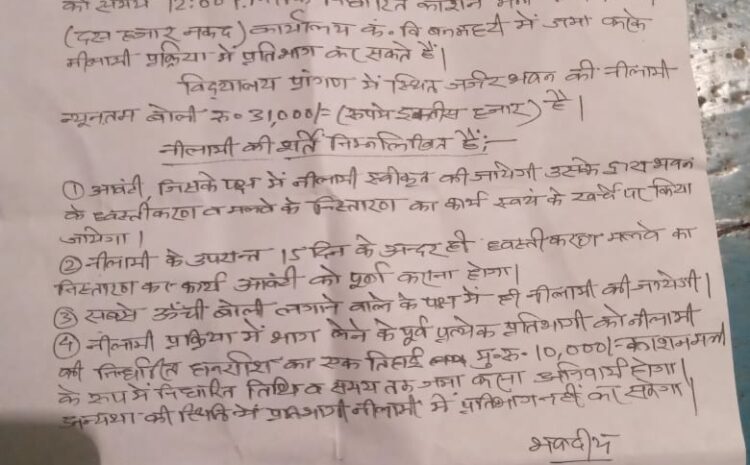 को समय 12:00 निर्धारित काशन मनी
(दस हजार नकद) कार्यालय कं. वि बनमहरी में जमा करके
नीलामी प्रक्रिया में प्रतिभाग कर सकते हैं।
विद्यालय प्रांगण में स्थित जर्जर भवन की नीलामी
न्यूनतम बोली रु० 31,000/= (रूपये इकतीस हजार) है।
नीलामी की शर्ते निम्नलिखित हैं;—
① आवंटी जिसके पक्ष में नीलामी स्वीकृत की जायेगी उसके द्वारा भवन
के ध्वस्तीकरण व मलवे के निस्तारण का कार्य स्वयं के खर्चे पर किया
जायेगा।
② नीलामी के उपरान्त 15 दिन के अन्दर ही ध्वस्तीकरण मलवे का
निस्तारण का कार्य आवंटी को पूर्ण कराना होगा।
③ सबसे ऊँची बोली लगाने वाले के पक्ष में ही नीलामी की जायेगी।
④ नीलामी प्रक्रिया में भाग लेने के पूर्व प्रत्येक प्रतिभागी को नीलामी
की निर्धारित धनराशि का एक तिहाई मु०रु० 10,000/= काशन मनी
के रूप में निर्धारित तिथि व समय तक जमा करना अनिवार्य होगा।
अन्यथा की स्थिति में प्रतिभागी नीलामी में प्रतिभाग नहीं कर सकेगा।
भवदीय